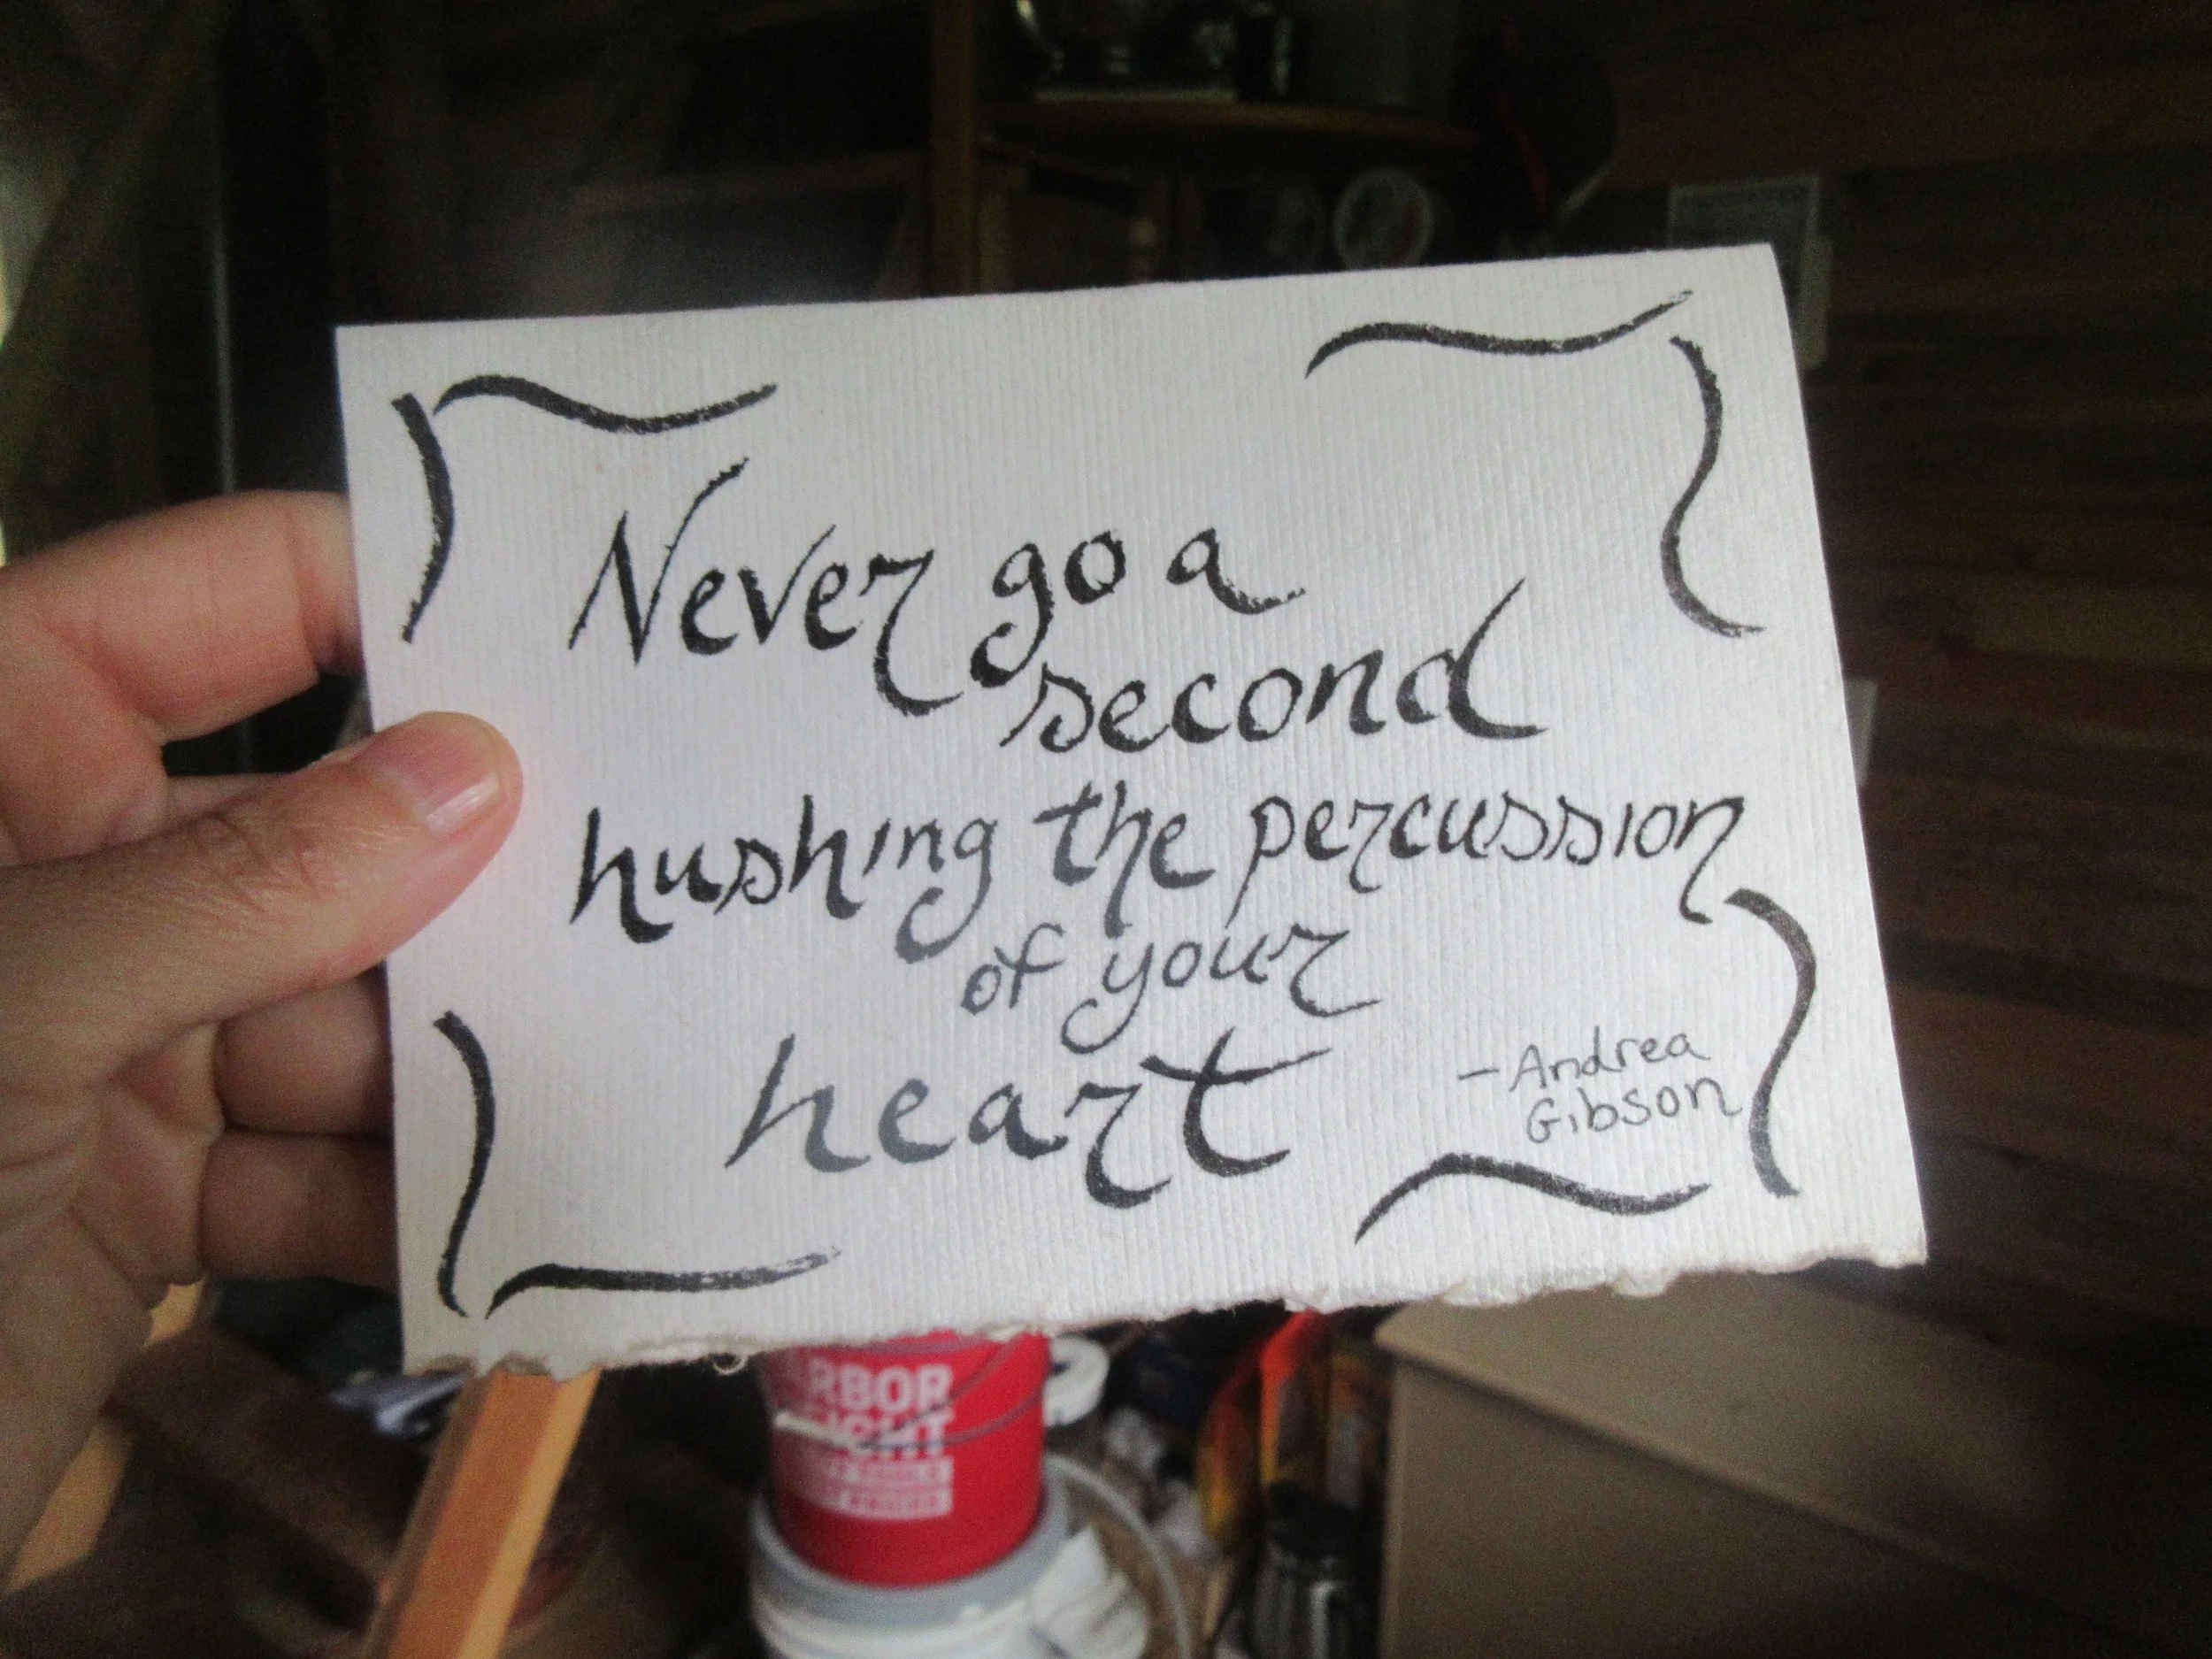 Never go a
second
hushing the percussion
of your
heart
-Andrea
Gibson
RBOR